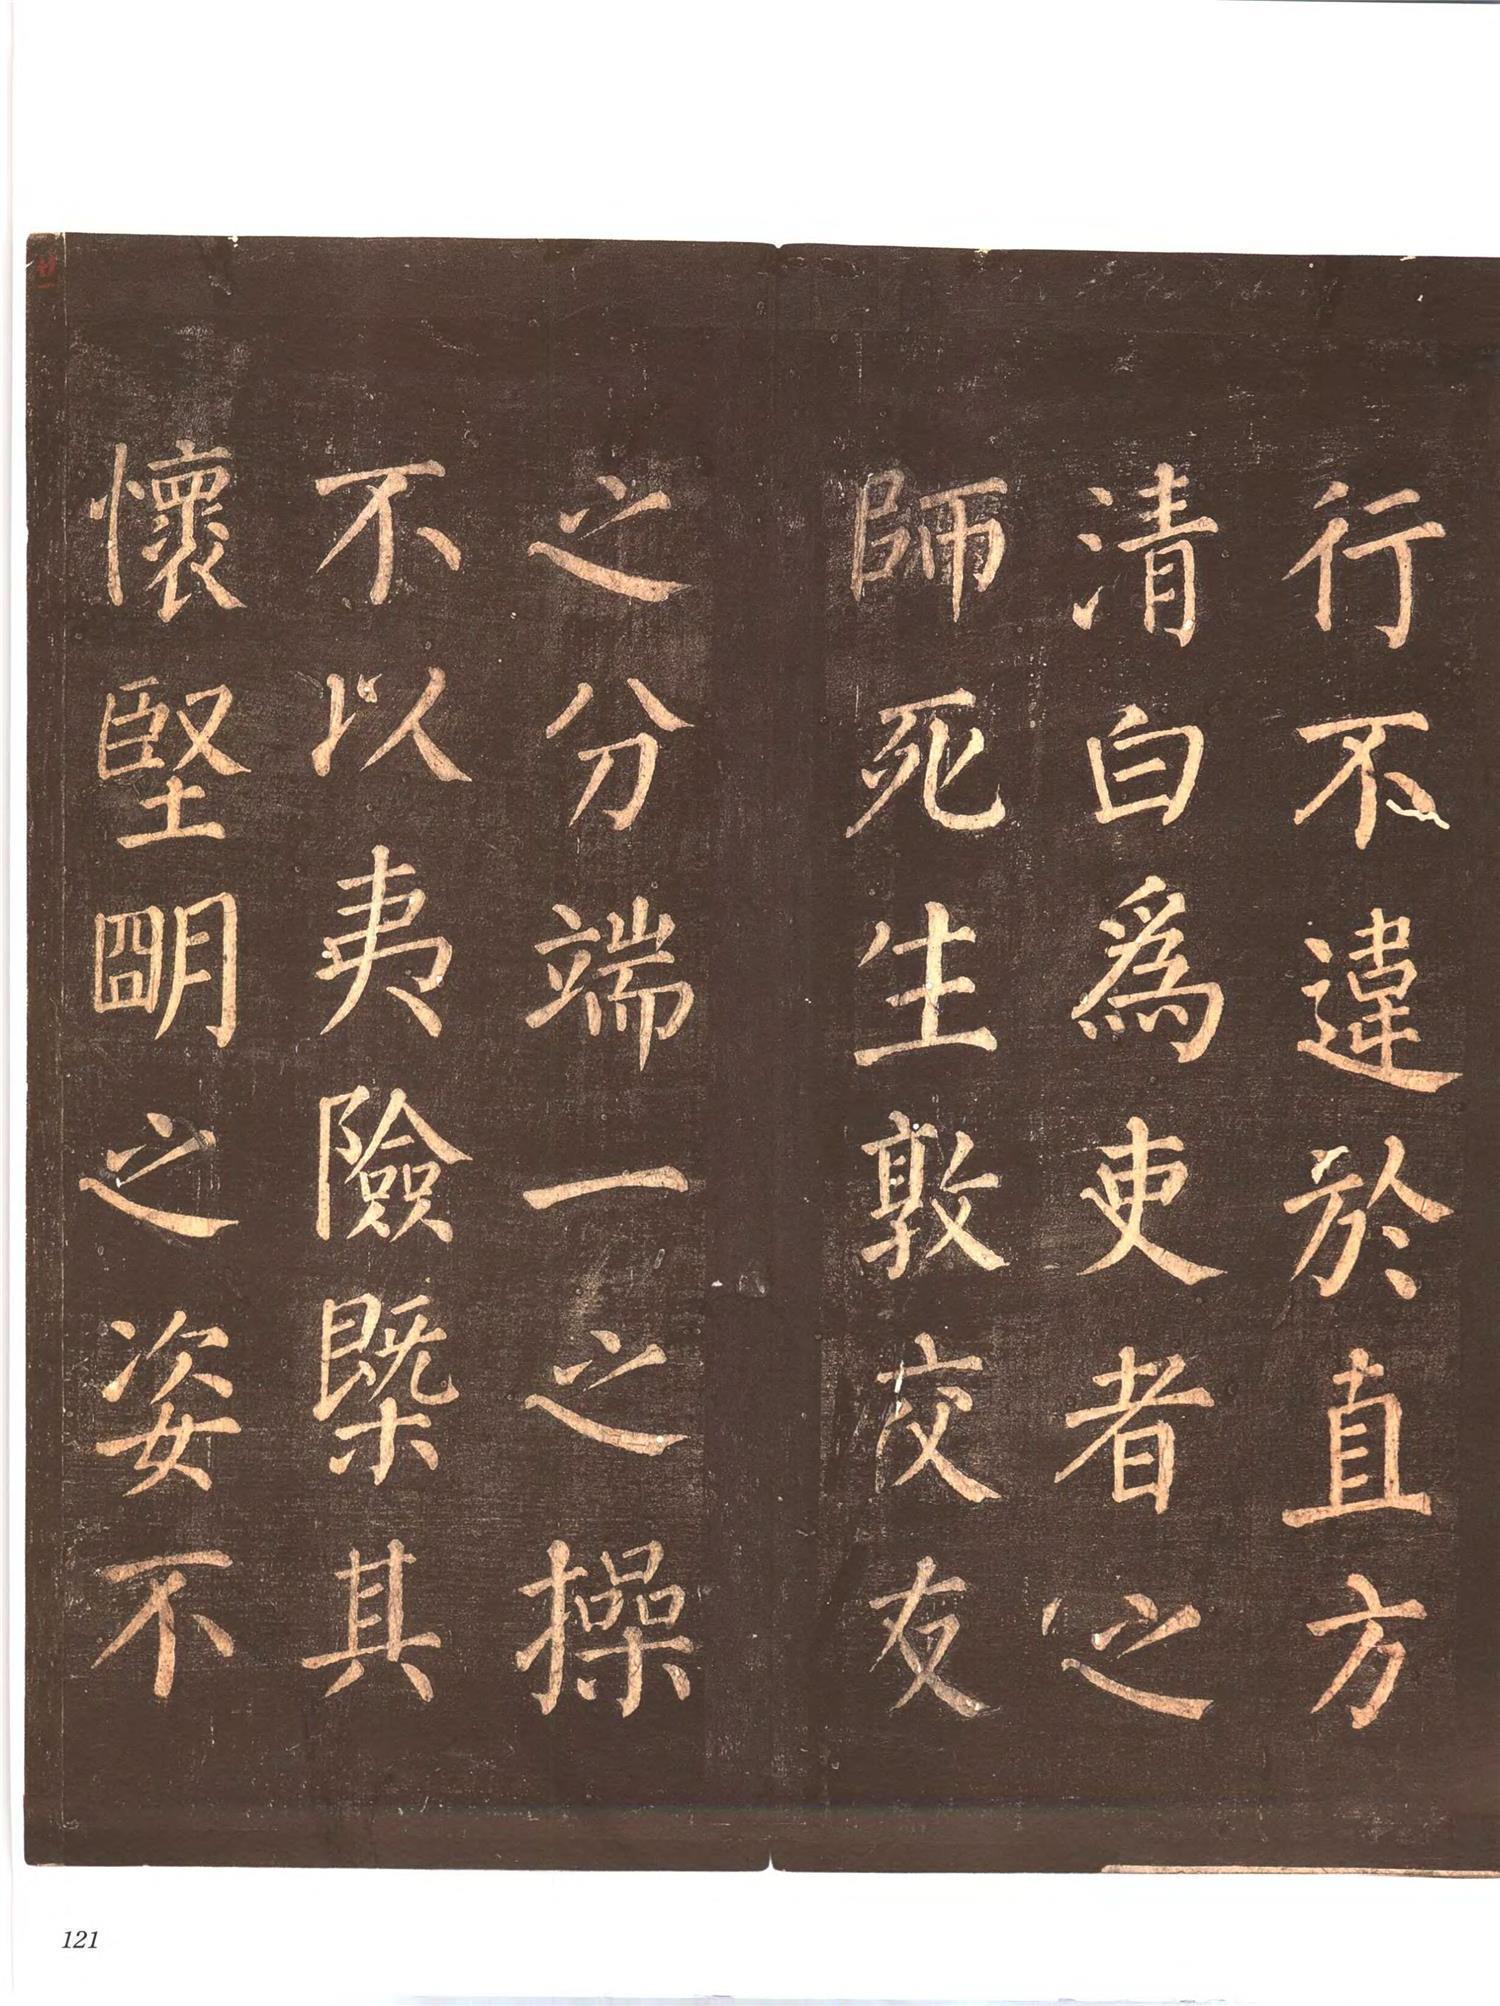 行不違於直方
清白爲吏者之
師死生敦交友
之分端一之操
不以夷險槩其
懷堅明之姿不
121